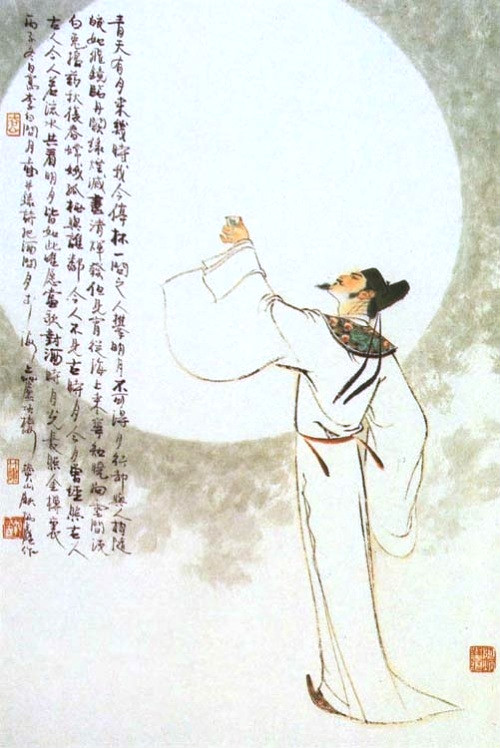 青天有月來幾時我今停杯一問之人攀明月不可得月行却與人相隨
皎如飛鏡臨丹闕綠煙滅盡清輝發但見宵從海上來寧知曉向雲間沒
白兔擣藥秋復春嫦娥孤栖與誰鄰今人不見古時月今月曾經照古人
古人今人若流水共看明月皆如此唯愿當歌對酒時月光長照金樽裏
丙子冬日寫李白問月 并錄詩把酒問月于海上